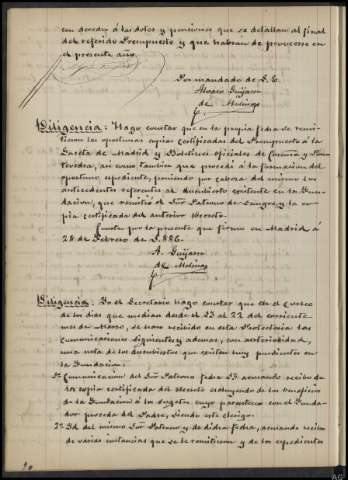 con derecho á las dotes y pensiones que se detallan al final
del referido Presupuesto y que habran de proveerse en
el presente año.
Por mandado de S. E.
Alvaro Guijarro
de Molinas
Diligencia: Hago constar que en la propia fecha se remi-
tieron las oportunas copias certificadas del Presupuesto á la
Gaceta de Madrid y Boletines oficiales de Coruña y Pon-
tevedra, así como tambien que procedí á la formacion del
oportuno espediente, poniendo por cabeza del mismo los
antecedentes referentes al descubierto existente en la Fun-
dacion, que remitió el Sor. Patrono de Sangre, y la co-
pia certificada del anterior decreto.
Consta por la presente que firmo en Madrid á
28 de Febrero de 1.886.
A. Guijarro
de Molinas
Diligencia: Yo el Secretario hago constar que en el curso
de los dias que median desde el 23 al 22 del corriente
mes de Marzo, se han recibido en esta Protectoria las
Comunicaciones siguientes y ademas, con anterioridad,
una nota de los descubiertos que existen hoy pendientes en
la Fundacion:
1ª Comunicacion del Sor. Patrono fecha 23 acusando recibo de
la copia certificada del decreto escluyendo de los beneficios
de la Fundacion á los sugetos cuyo parentesco con el Funda-
dor proceda del Padre, siendo este clérigo.
2ª Id. del mismo Sor. Patrono y de dicha fecha, acusando recibo
de varias instancias que se le remitieron y de los espedientes
AG